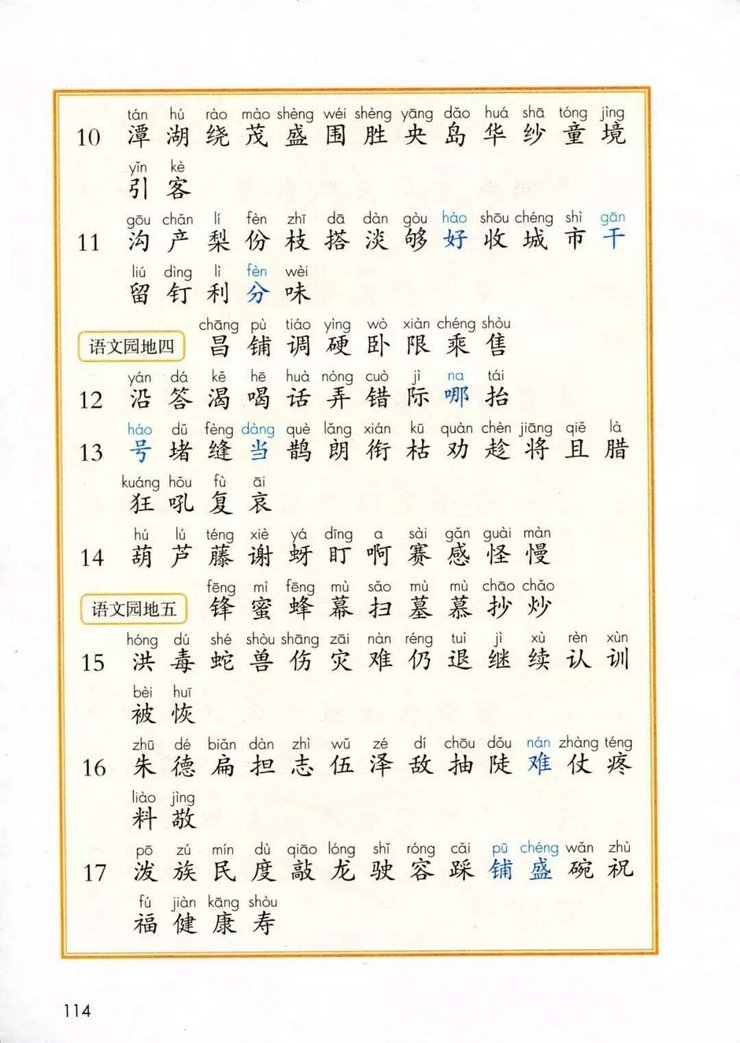 tán hú rào mào shèng wéi shèng yāng dǎo huá shā tóng jìng
10 潭 湖 绕 茂 盛 围 胜 央 岛 华 纱 童 境
yǐn kè
引 客
gōu chǎn lí fèn zhī dā dàn gòu hào shōu chéng shì gān
11 沟 产 梨 份 枝 搭 淡 够 好 收 城 市 干
liú dìng lì fèn wèi
留 钉 利 分 味
chāng pù tiáo yìng wò xiàn chéng shòu
语文园地四 昌 铺 调 硬 卧 限 乘 售
yán dá kě hē huà nòng cuò jì na tái
12 沿 答 渴 喝 话 弄 错 际 哪 抬
háo dǔ fèng dàng què lǎng xián kū quàn chèn jiāng qiě là
13 号 堵 缝 当 鹊 朗 衔 枯 劝 趁 将 且 腊
kuáng hǒu fù āi
狂 吼 复 哀
hú lú téng xiè yá dīng a sài gǎn guài màn
14 葫 芦 藤 谢 蚜 盯 啊 赛 感 怪 慢
fēng mì fēng mù sǎo mù mù chāo chǎo
语文园地五 锋 蜜 蜂 幕 扫 墓 慕 抄 炒
hóng dú shé shòu shāng zāi nàn réng tuì jì xù rèn xùn
15 洪 毒 蛇 兽 伤 灾 难 仍 退 继 续 认 训
bèi huī
被 恢
zhū dé biǎn dàn zhì wǔ zé dí chōu dǒu nán zhàng téng
16 朱 德 扁 担 志 伍 泽 敌 抽 陡 难 仗 疼
liào jìng
料 敬
pō zú mín dù qiāo lóng shǐ róng cǎi pū chéng wǎn zhù
17 泼 族 民 度 敲 龙 驶 容 踩 铺 盛 碗 祝
fú jiàn kāng shòu
福 健 康 寿
114